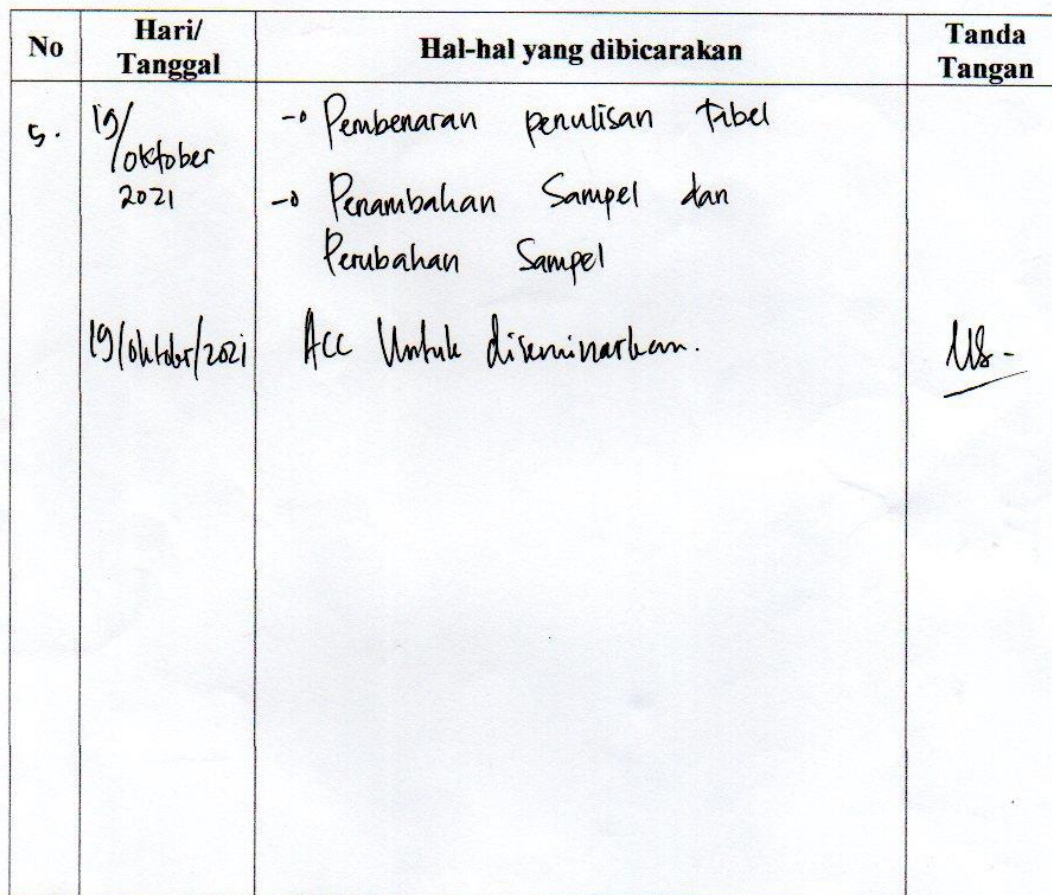 No
Hari/
Tanggal
Hal-hal yang dibicarakan
Tanda
Tangan
5.
19/
oktober
2021
-> Pembenaran penulisan Tabel
-> Penambahan Sampel dan
Perubahan Sampel
19/Oktober/2021
Acc Untuk diseminarkan.